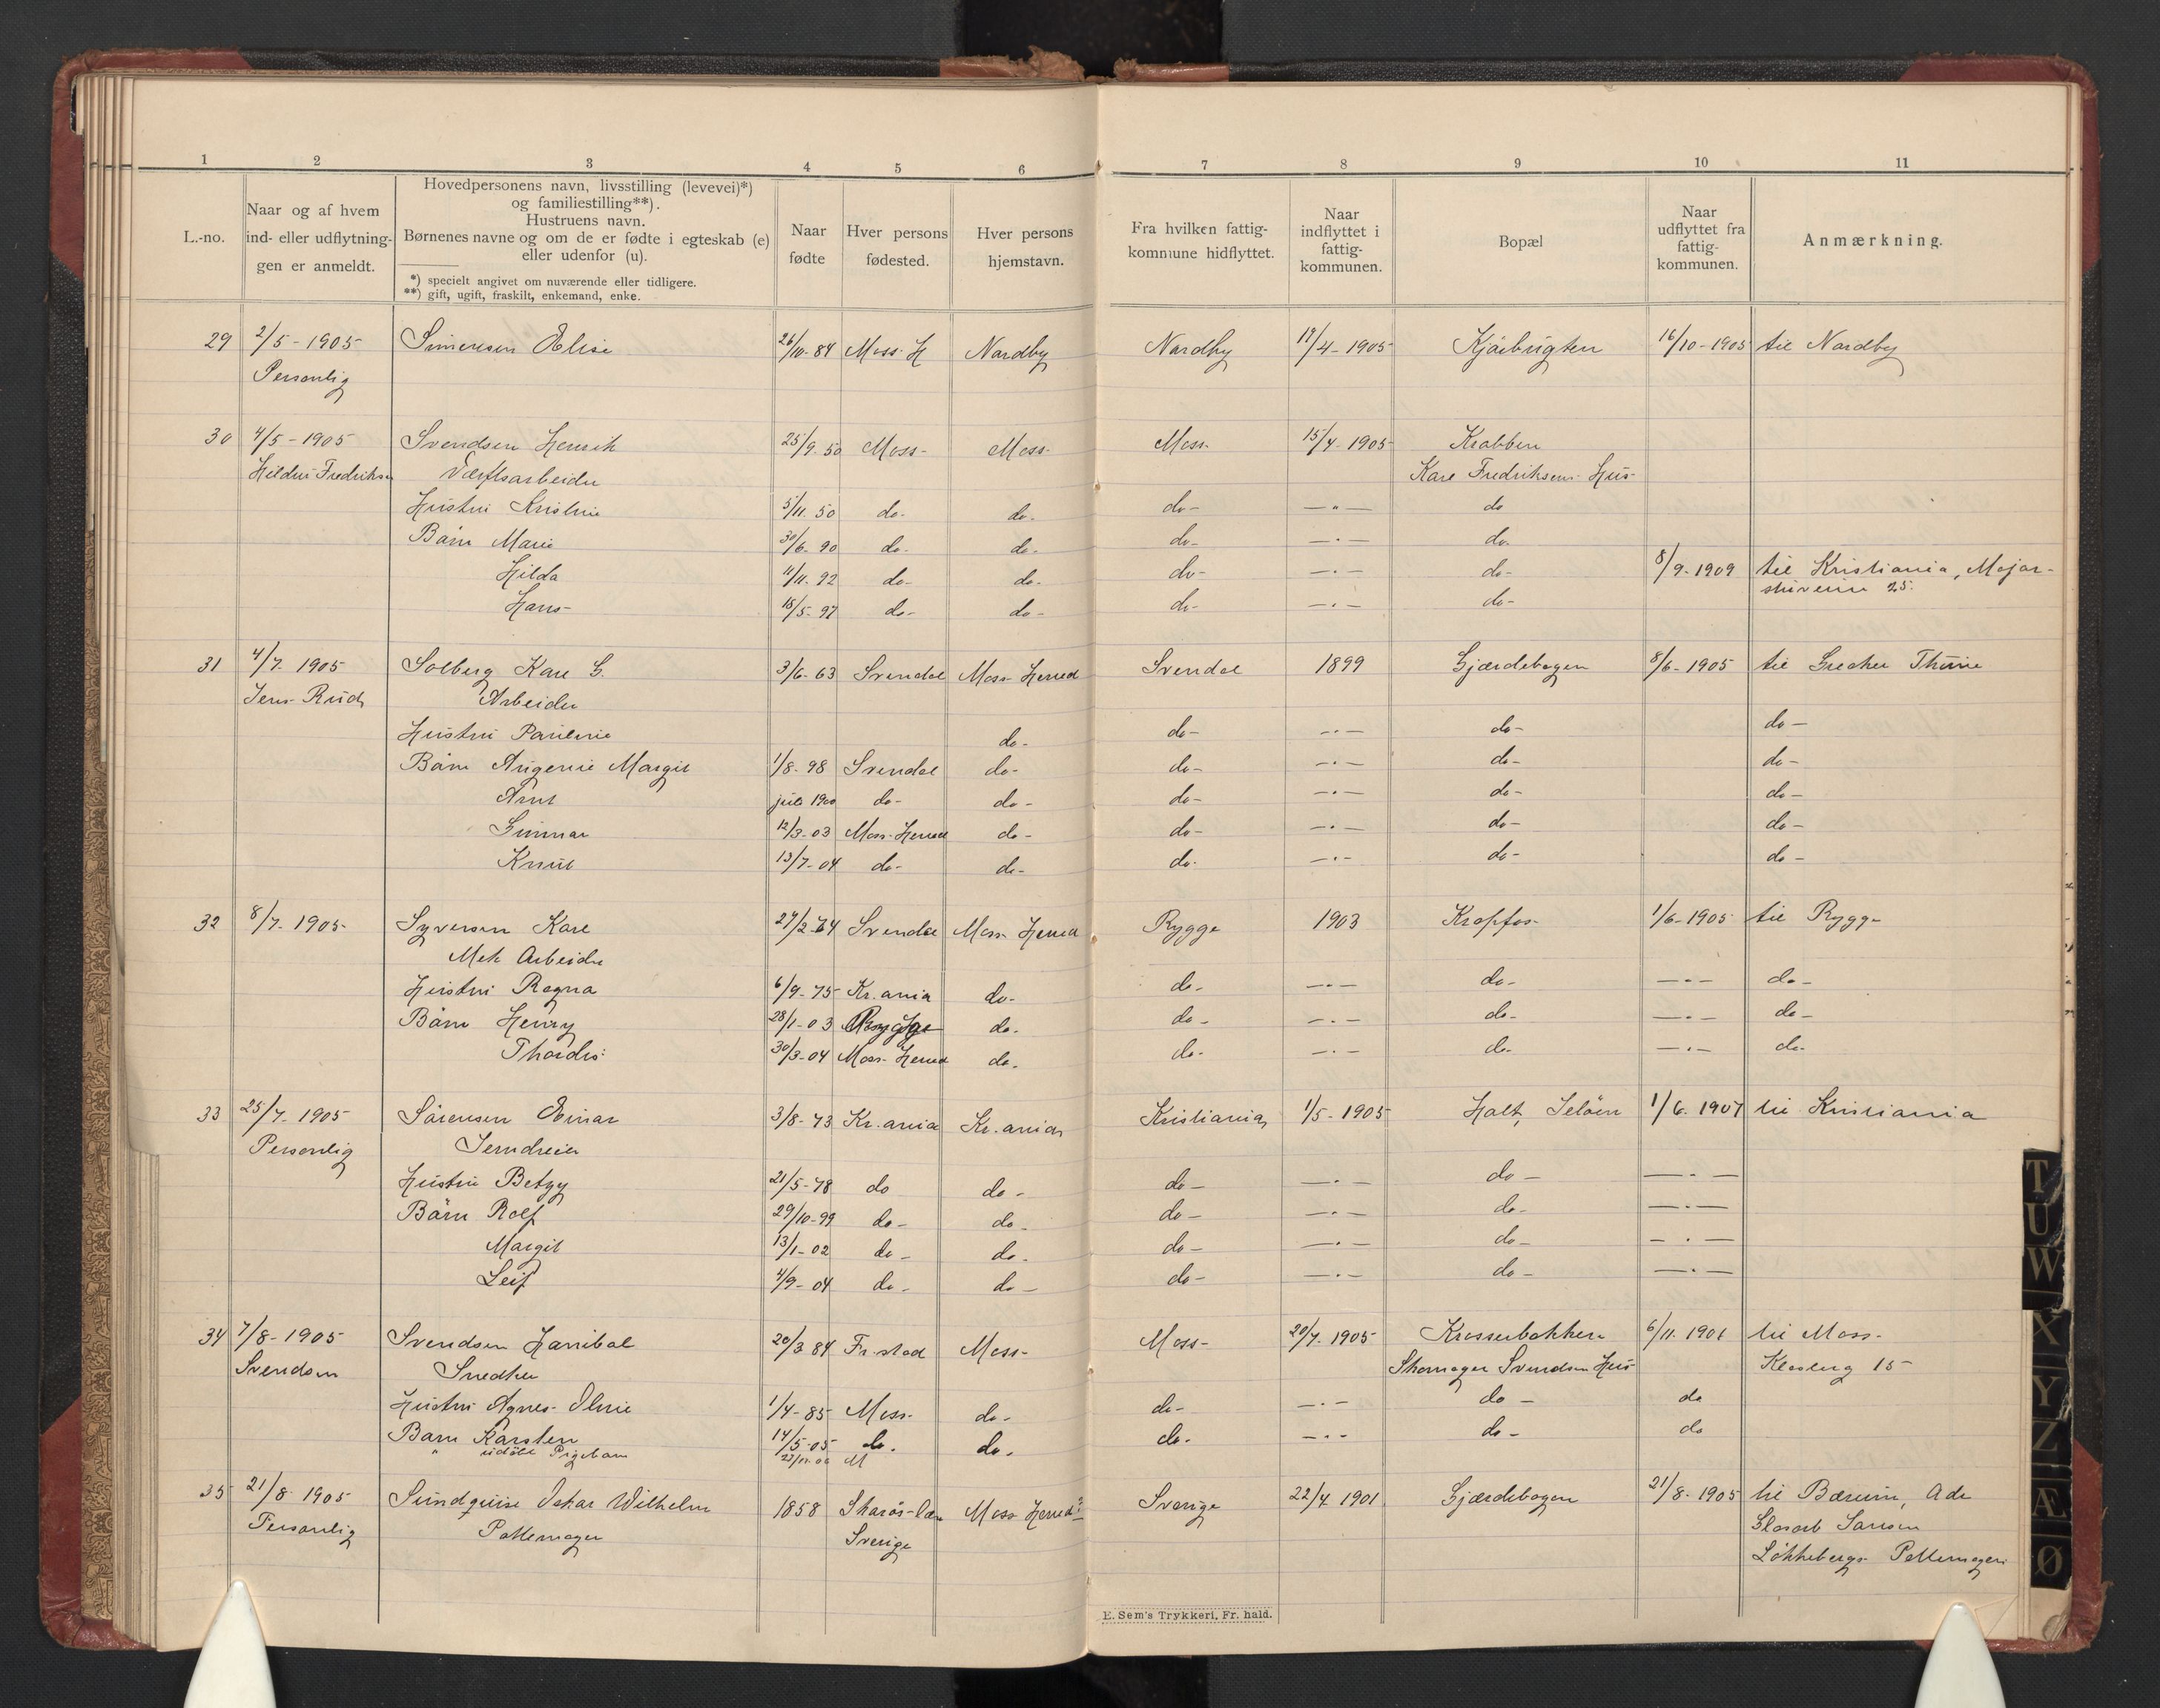 1 2 3 4 5 6 7 8 9 10 11
L.-no.
Naar og af hvem
ind- eller udflytnin-
gen er anmeldt.
Hovedpersonens navn, livsstilling (levevei)*)
og familiestilling**).
Hustruens navn.
Børnenes navne og om de er fødte i egteskab (e)
eller udenfor (u).
*) specielt angivet om nuværende eller tidligere.
**) gift, ugift, fraskilt, enkemand, enke.
Naar
fødte
Hver persons
fødested.
Hver persons
hjemstavn.
Fra hvilken fattig-
kommune hidflyttet.
Naar
indflyttet i
fattig-
kommunen.
Bopæl
Naar
udflyttet fra
fattig-
kommunen.
Anmærkning.
29 2/5-1905 Simensen Elise 26/10-84 Moss H Nordby Nordby 19/4-1905 Kjæibugten 16/10-1905 til Nordby
Personlig
30 4/5-1905 Svendsen Henrik 25/9-50 Moss- Moss- Moss- 15/4-1905 Krabben
Hildur Fredriksen Værftsarbeider Karl Fredriksens Hus-
Hustru Kristine 5/11.50 do- do- do- —"— do
Børn Marie 30/6-90 do- do- do- —"— do.
Hilda 11/11.92 do- do- do- —"— do- 8/9-1909 til Kristiania, Major-
stuveien 25.
Hans- 15/5-97 do- do- do- —"— do-
31 4/7-1905 Solberg Karl G. 3/6-63 Svendal Moss Herred Svendal 1899 Gjærdebogen 8/6-1905 til Græker Thune
Jens Rud Arbeider
Hustru Pauline do- do- —"— do- do-
Børn Augenie Margit 1/8-98 Svendal do- do- —"— do- do-
Arnt juli 1900 do- do- do- —"— do- do-
Gunnar 12/3-03 Moss-Herred do- do- —"— do- do-
Knut 13/7-04 do- do- do- —"— do- do-
32 8/7-1905- Syversen Karl 27/2-74 Svendal Moss-Herred Rygge 1903 Kropfos- 1/6-1905 til Rygge
Mek Arbeider
Hustru Ragna 6/9-75 Kr.ania do- do- —"— do- —"— do-
Børn Henry 28/1-03 Rygge do- do- —"— do- —"— do-
Thordis 30/3-04 Moss-Herred do- do- —"— do- —"— do-
33 25/7-1905 Sörensen Einar 3/8-73 Kr.ania Kr.ania Kristiania 1/5-1905 Holt, Jelöen 1/6-1907 til Kristiania
Personlig Jerndreier
Hustru Betzy 21/5-78 do do- do- —"— do- —"—
Børn Rolf 29/10-99 do- do- do- —"— do- —"—
Margit 13/1-02 do- do- do- —"— do- —"—
Leif 4/9-04 do- do- do- —"— do- —"—
34 7/8-1905 Svendsen Hanibal 20/3 84 Fr.stad Moss- Moss- 20/7-1905 Krosserbakken 6/11.1901 til Moss-
Svendsen Snedker Skomager Svendsens Hus- 15
Hustru Agnes 1/4-85 Moss- do- do- —"— do- do
Barn Karsten 14/5-05 do. do. do- —"— do- do
" udöbt Pigebarn M
35 21/8-1905 Sundquist Oskar Wilhelm 1858 Skarås-län Moss Herred? Sverige 22/4 1901 Gjærdebogen 21/8-1905 til Bærum, Adr
Personlig Pottemager Sverige Larsen
Løkkebergs Pottemageri
E. Sem's Trykkeri, Fr. hald.
T
U
W
X
Y
Z
Æ
Ø